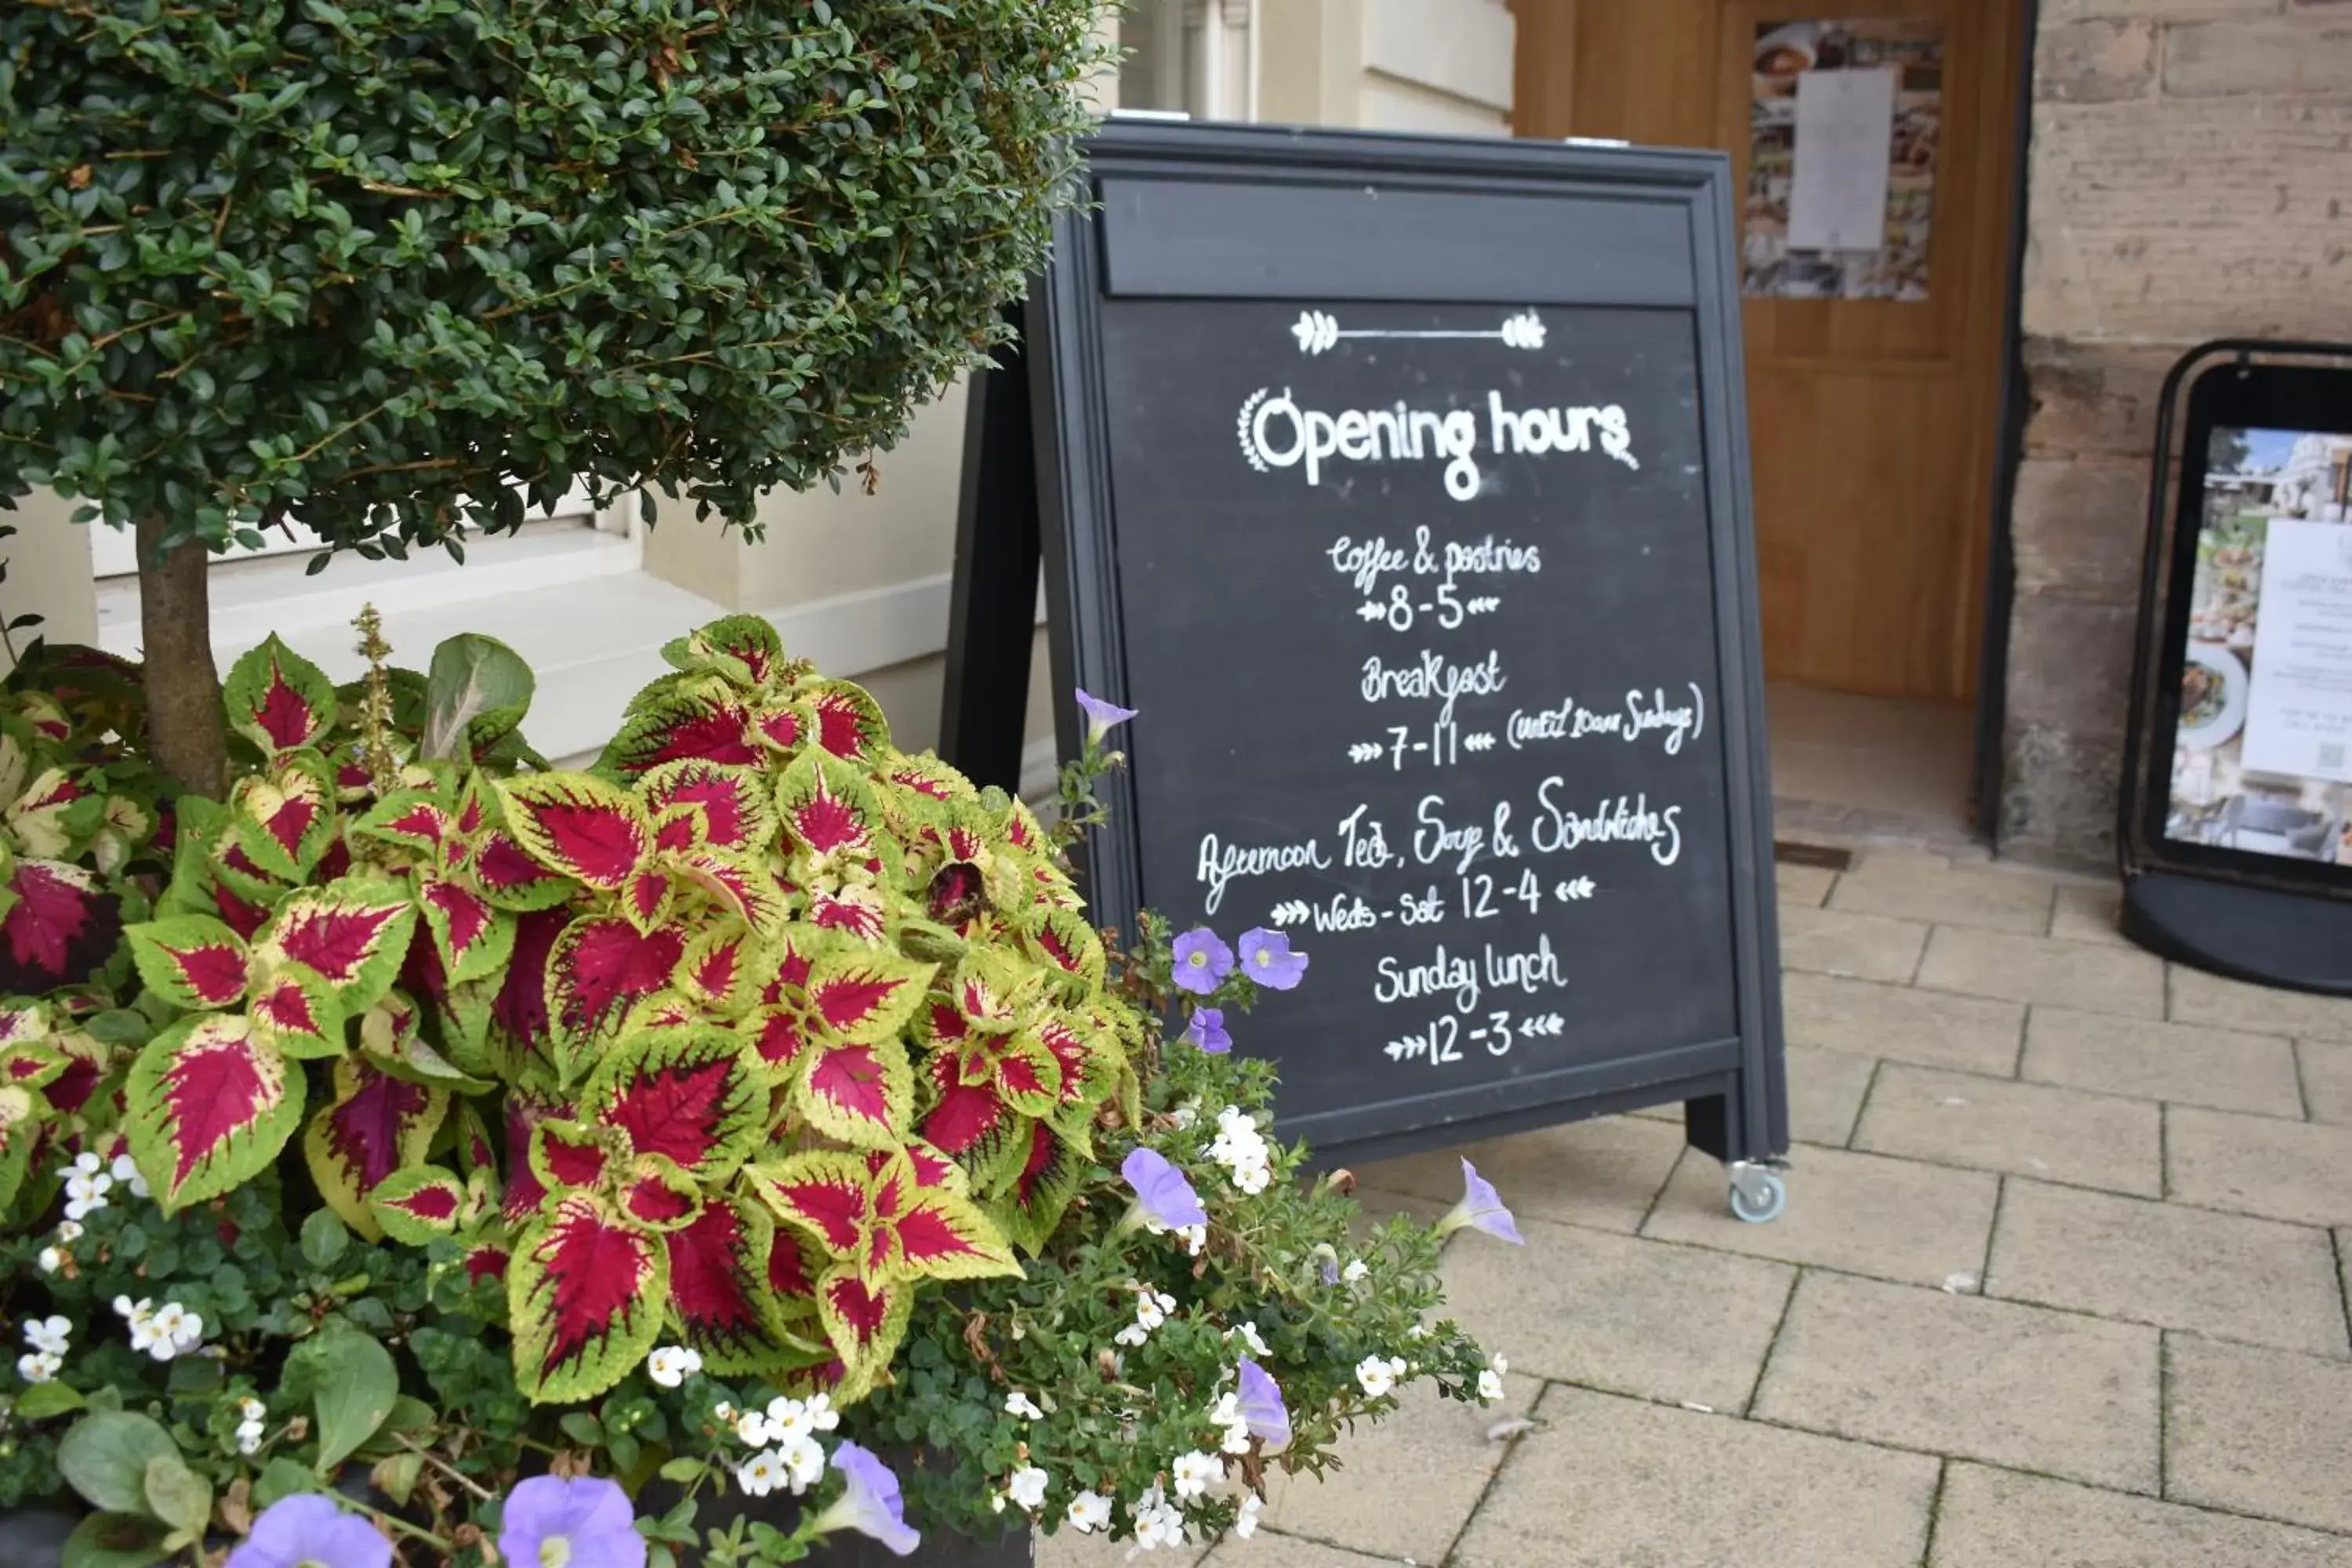 Opening hours
Coffee & pastries
8-5
Breakfast
7-11 (until 10am Sundays)
Afternoon Tea, Soup & Sandwiches
Weds - Sat 12-4
Sunday lunch
12-3